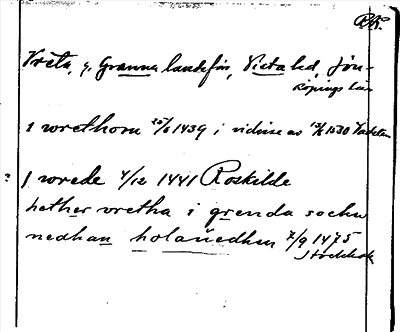 RA.
Vreta, g. Granna landsförs, Vista hd, Jön-
köpings län
i wrethom 25/6 1439 i vidisse av 13/8 1530 Vadsten
? j wrede 4/12 1441 Roskilde
hether vretha i grenda sochn
nedhan holauedhen 7/9 1475
Stockholm